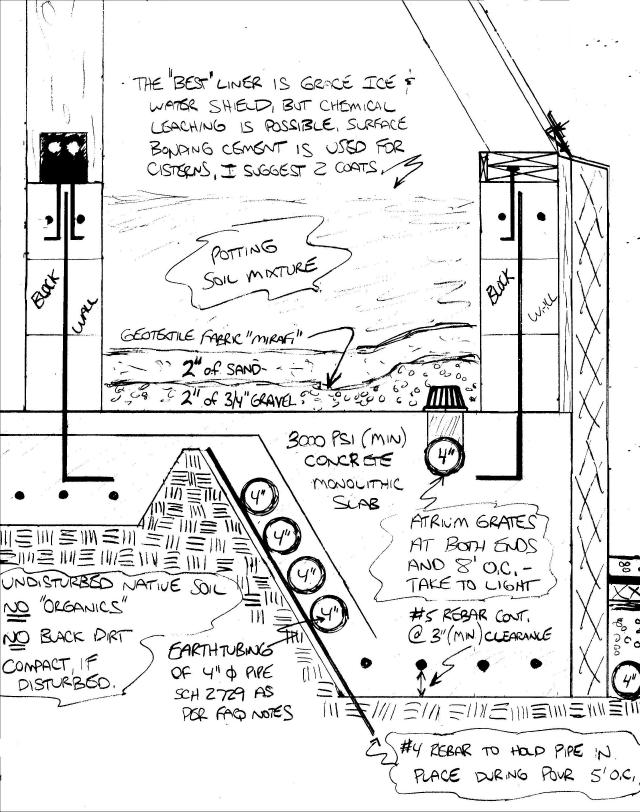 THE "BEST" LINER IS GRACE ICE &
WATER SHIELD, BUT CHEMICAL
LEACHING IS POSSIBLE, SURFACE
BONDING CEMENT IS USED FOR
CISTERNS, I SUGGEST 2 COATS.
POTTING
SOIL MIXTURE
BLOCK
WALL
BLOCK
WALL
GEOTEXTILE FABRIC "MIRAFI"
2" of SAND
2" of 3/4" GRAVEL
3000 PSI (MIN)
CONCRETE
MONOLITHIC
SLAB
4"
4"
4"
4"
4"
ATRIUM GRATES
AT BOTH ENDS
AND 8' O.C. -
TAKE TO LIGHT
UNDISTURBED NATIVE SOIL
NO "ORGANICS"
NO BLACK DIRT
COMPACT, IF
DISTURBED.
EARTHTUBING
OF 4" φ PIPE
SCH 2729 AS
PER FAQ NOTES
#5 REBAR CONT.
@ 3" (MIN) CLEARANCE
4"
#4 REBAR TO HOLD PIPE IN
PLACE DURING POUR 5' O.C.